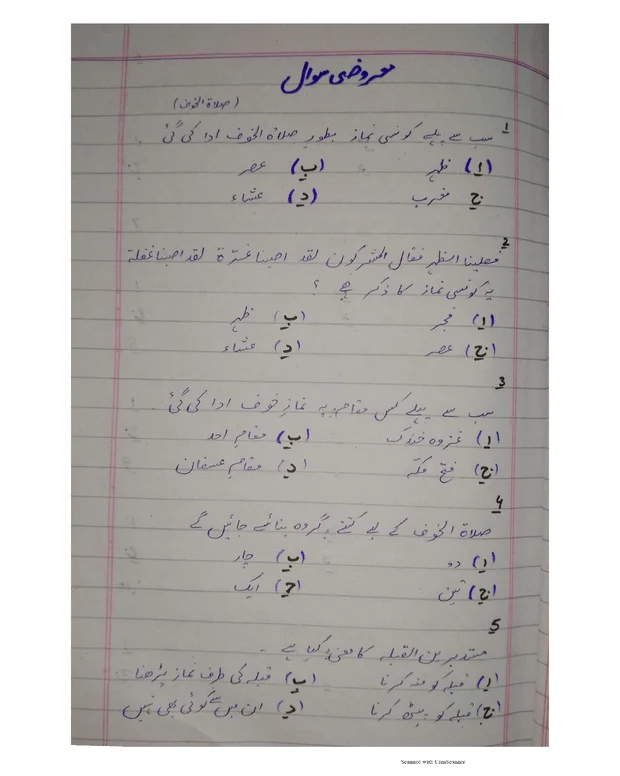 معروضی سوال
(صلاۃ الخوف)
1
سب سے پہلے کونسی نماز بطور صلاۃ الخوف ادا کی گئی
(ا) ظہر (ب) عصر
ج مغرب (د) عشاء
2
فصلینا الظہر فقال المشرکون لقد اصبنا غرۃ لقد اصبنا غفلة
یہ کونسی نماز کا ذکر ہے ؟
(ا) فجر (ب) ظہر
(ج) عصر (د) عشاء
3
سب سے پہلے کس مقام پہ نماز خوف ادا کی گئی .
(ا) غزوہ خندک (ب) مقام احد
(ج) فتح مکہ (د) مقام عسفان
4
صلاۃ الخوف کے لیے کتنے گروہ بنائے جائیں گے
(ا) دو (ب) چار
(ج) تین (د) ایک
5
مستدبرین القبلہ کا معنی کیا ہے .
(ا) قبلہ کو منہ کرنا (ب) قبلہ کی طرف نماز پڑھنا
(ج) قبلہ کو پیٹھ کرنا (د) ان میں سے کوئی بھی نہیں
Scanned with CamScanner